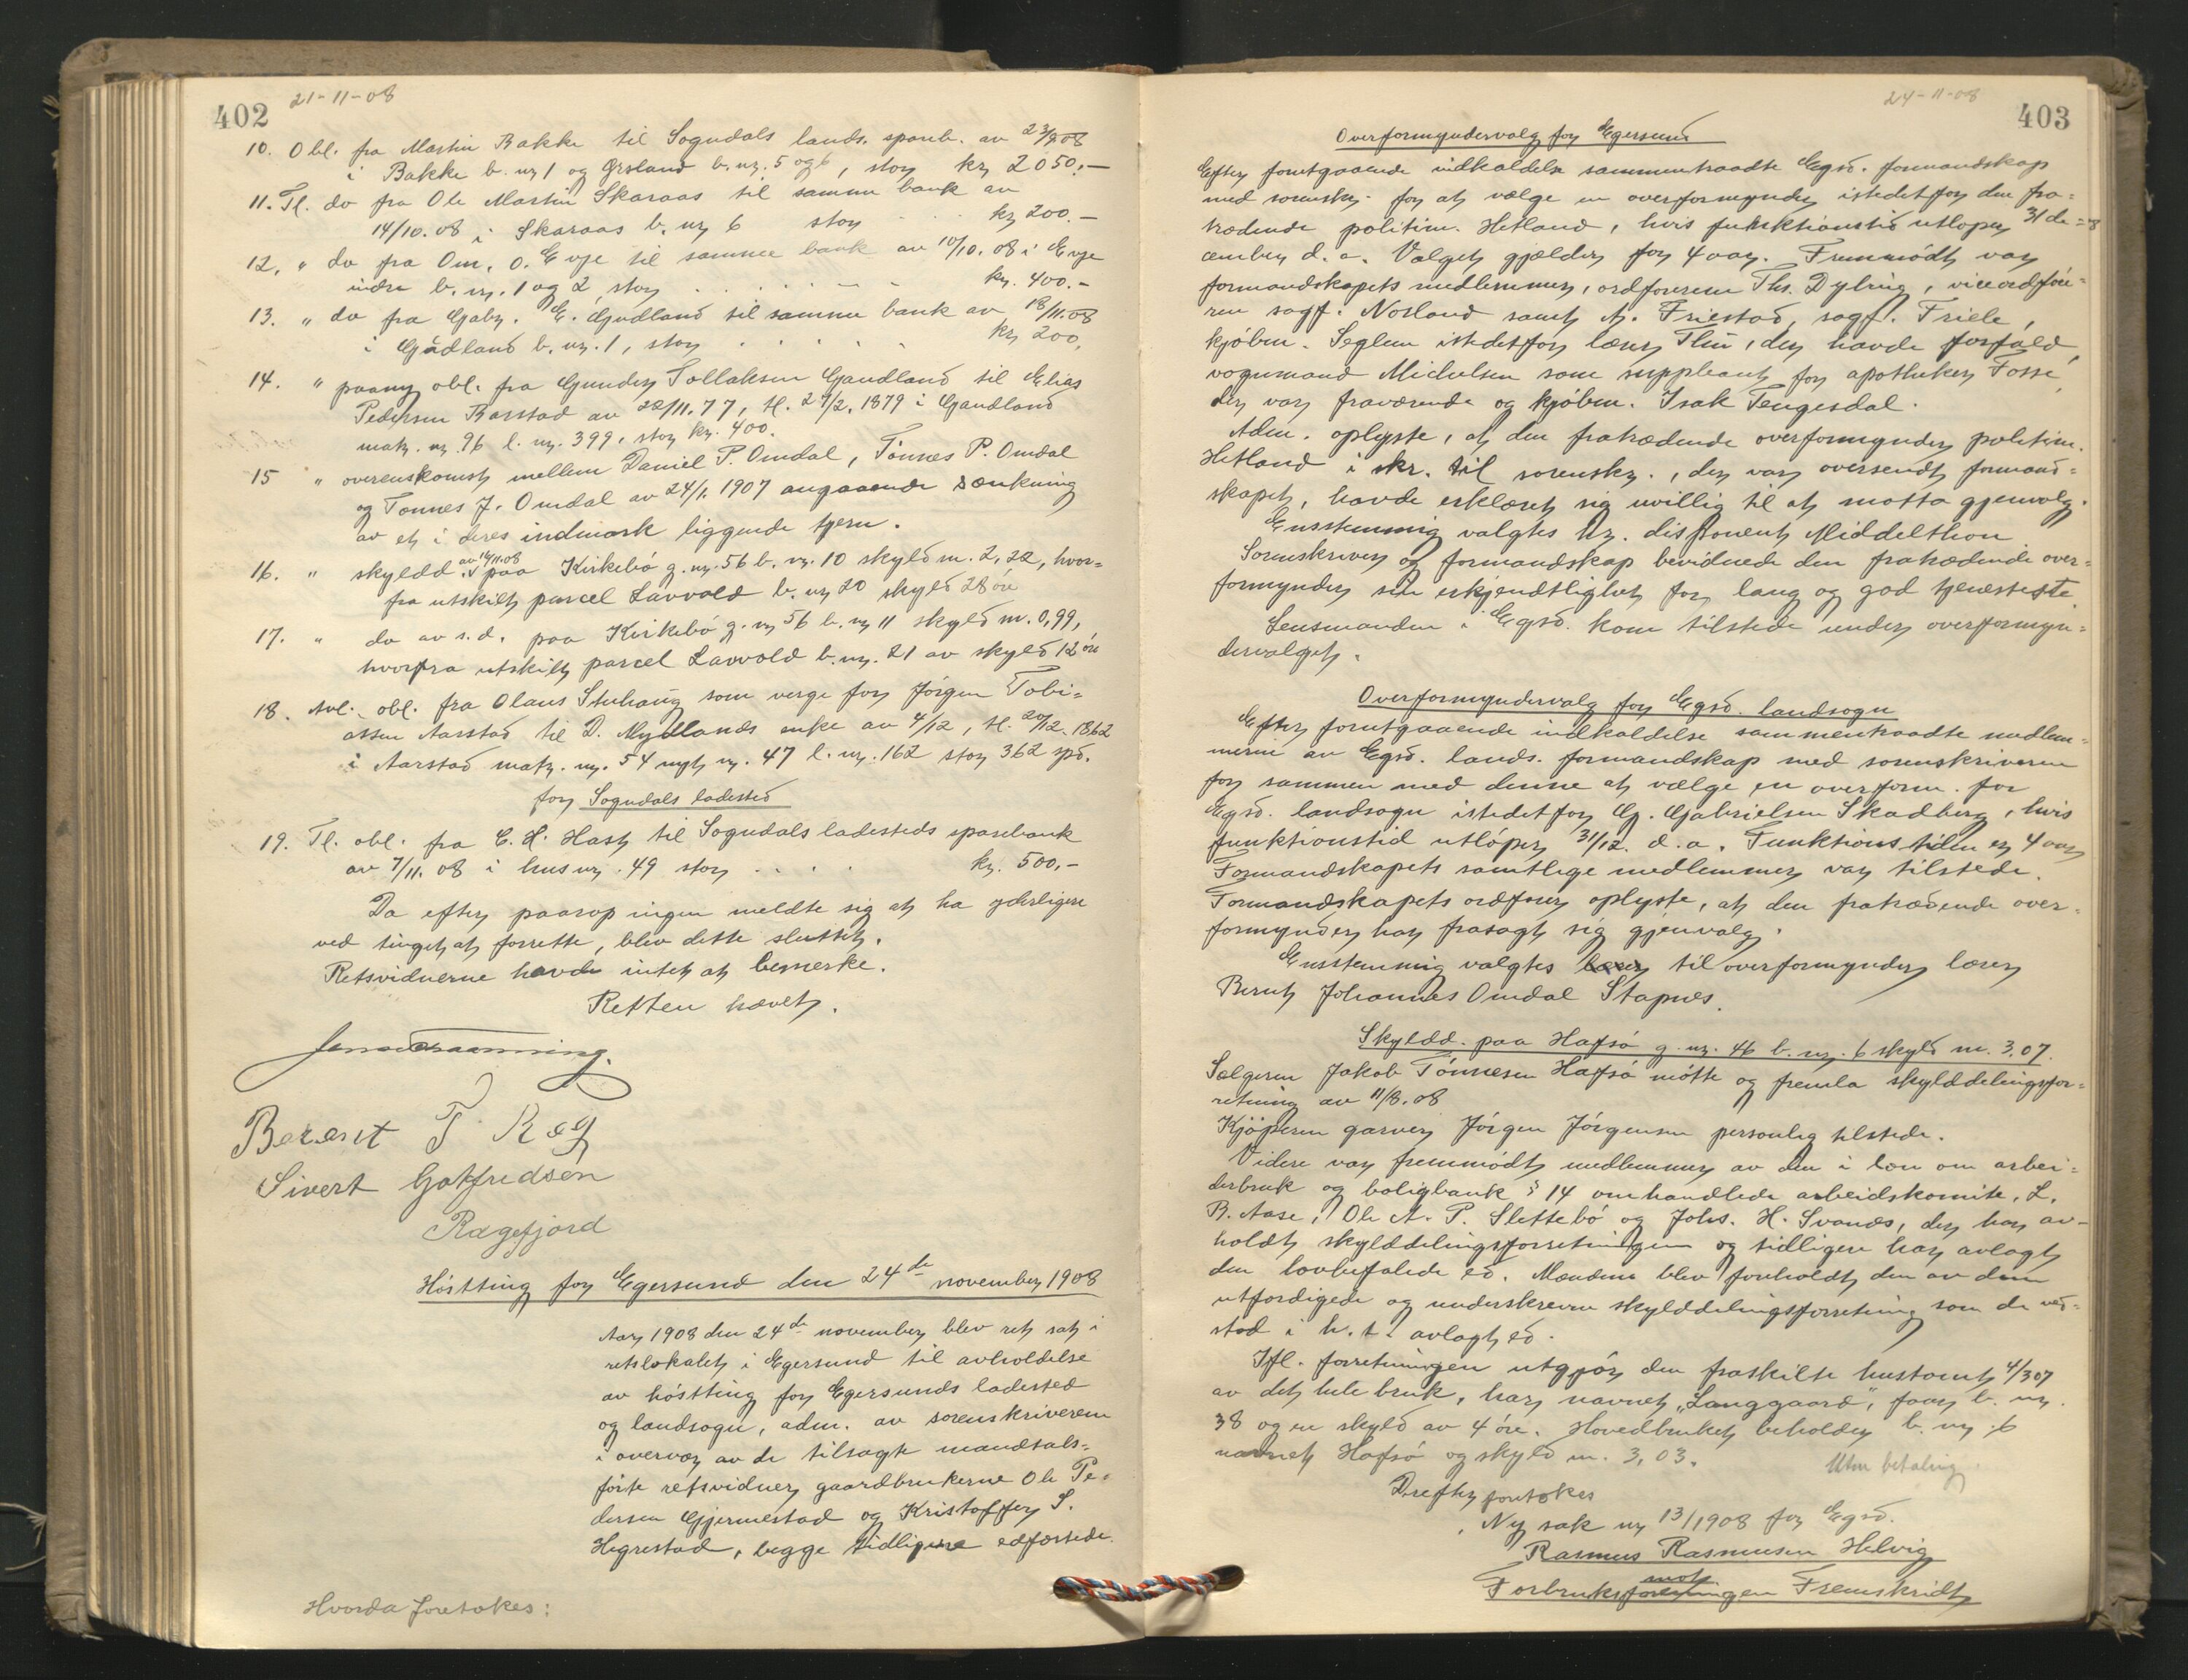 402
21-11-08
10. Obl. fra Martin Bakke til Sogndals lands. spareb. av 23/9.08
i Bakke b. nr 1 og Årsland b. nr. 5 og 6, stor kr 2050.-
11. Tl. do fra Ole Martin Skaraas til samme bank av
14/10.08 i Skaraas b. nr 6 stor . . kr 200.-
12. " do fra Om. O. Evje til samme bank av 10/10.08 i Evje
indre b. nr. 1 og 2, stor . . . . . . kr. 400.-
13. " do fra Gabr. E. Gydland til samme bank av 18/11.08
i Gydland b. nr. 1, stor . . . . . kr 200,
14. " paany obl. fra Gunder Tollaksen Gaudland til Elias
Pedersen Barstad av 22/11.77, tl. 27/2. 1879 i Gaudland
matr. nr 96 l. nr. 399, stor kr. 400.
15 " overenskomst mellem Daniel P. Omdal, Tönnes P. Omdal
og Tönnes J. Omdal av 24/1. 1907 angaaende sænkning
av et i deres indmark liggende tjern.
16. " skyldd. av 14/11.08 paa Kirkebö g. nr. 56 b. nr. 10 skyld m. 2,22, hvor=
fra utskilt parcel Lavvold b. nr 20 skyld 28 öre
17. " do av s.d. paa Kirkebö g. nr 56 b. nr 11 skyld m. 0,99,
hvorfra utskilt parcel Lavvold b. nr. 21 av skyld 12 öre
18. Avl. obl. fra Olaus Stuhaug som verge for Jörgen Tobi=
assen Aarstad til D. Mydlands enke av 4/12, tl. 20/12. 1862
i Aarstad matr. nr. 54 nyt nr. 47 l. nr. 162 stor 362 spd.
for Sogndals ladested
19. Tl. obl. fra C. H. Hast til Sogndals ladesteds sparebank
av 7/11. 08 i hus nr. 49 stor . . . . kr. 500,-
Da efter paarop ingen meldte sig at ha yderligere
ved tinget at forrette, blev dette sluttet.
Retsvidnerne havde intet at bemerke.
Retten hævet.
Berent T. Reg
Sivert Gotfredsen
Rægefjord
Hösting for Egersund den 24de november 1908
Aar 1908 den 24de november blev ret sat i
retslokalet i Egersund til avholdelse
av hösting for Egersunds ladested
og landsogn, adm. av sorenskriveren
i overvær av de tilsagte mandtals=
förte retsvidner gaardbrukerne Ole Pe=
dersen Gjermestad og Kristoffer S.
Hegrestad, begge tidligere edfæstede.
Hvorda foretokes:
24-11-08
403
Overformyndervalg for Egersund
Efter forutgaaende indkaldelse sammentraadte Egsd. formandskap
med sorenskr. for at vælge en overformynder istedetfor den fra=
trædende politim. Hetland, hvis funktionstid utloper 31 de=
cember d. a. Valget gjælder for 4 aar. Fremmödt var
formandskapets medlemmer, ordföreren Ths. Dybing, viceordföre=
ren sagf. Nodland samt A. Friestad, sagf. Friele,
kjöbm. Seglem istedetfor lærer Thu, der havde forfald,
vognmand Michelsen som suppleant for apotheker Fosse,
der var fraværende og kjöbm. Isak Tengesdal.
Adm. oplyste, at den fratrædende overformynder politim.
Hetland i skr. til sorenskr., der var oversendt formand=
skapet, havde erklæret sig uvillig til at motta gjenvalg.
Enstemmig valgtes hr. disponent Middelthon
Sorenskriver og formandskap bevidnede den fratrædende over=
formynder sin erkjendtlighet for lang og god tjeneste.
Lensmanden i Egsd. kom tilstede under overformyn=
dervalget.
Overformyndervalg for Egsd. landsogn
Efter forutgaaende indkaldelse sammentraadte medlem=
merne av Egsd. lands. formandskap med sorenskriveren
for sammen med denne at vælge en overform. for
Egsd. landsogn istedetfor G. Gabrielsen Skadberg, hvis
funktionstid utlöper 31/12. d. a. Funktionstiden er 4 aar
Formandskapets samtlige medlemmer var tilstede.
Formandskapets ordförer oplyste, at den fratrædende over=
formynder har frasagt sig gjenvalg.
Enstemmig valgtes til overformynder lærer
Bernt Johannes Omdal Stapnes.
Skyldd. paa Hafsö g. nr. 46 b. nr. 6 skyld m. 3.07.
Sælgeren Jakob Tönnesen Hafsö mötte og fremla skylddelingsfor=
retning av 11/8.08
Kjöperen garver Jörgen Jörgensen personlig tilstede.
Videre var fremmödt medlemmer av den i lov om arbei=
derbruk og boligbank § 14 omhandlede arbeidskomite, L.
B. Aase, Ole A. P. Slettebö og Johs. H. Svanes, der har av=
holdt skylddelingsforretningen og tidligere har avlagt
den lovbefalede ed. Mændene blev foreholdt den av dem
utfærdigede og underskrevne skylddelingsforretning som de ved=
stod i h. t. avlagt ed.
Ifl. forretningen utgjör den fraskilte hustomt 4/307
av det hele bruk, har navnet „Langgaard", faar b. nr.
38 og en skyld av 4 öre. Hovedbruket beholder b. nr 6
navnet Hafsö og skyld m. 3,03.
Uten betaling.
Derefter foretokes
Ny sak nr 13/1908 for Egsd.
Rasmus Rasmussen Helvig
mot
Forbruksforeningen Fremskridt